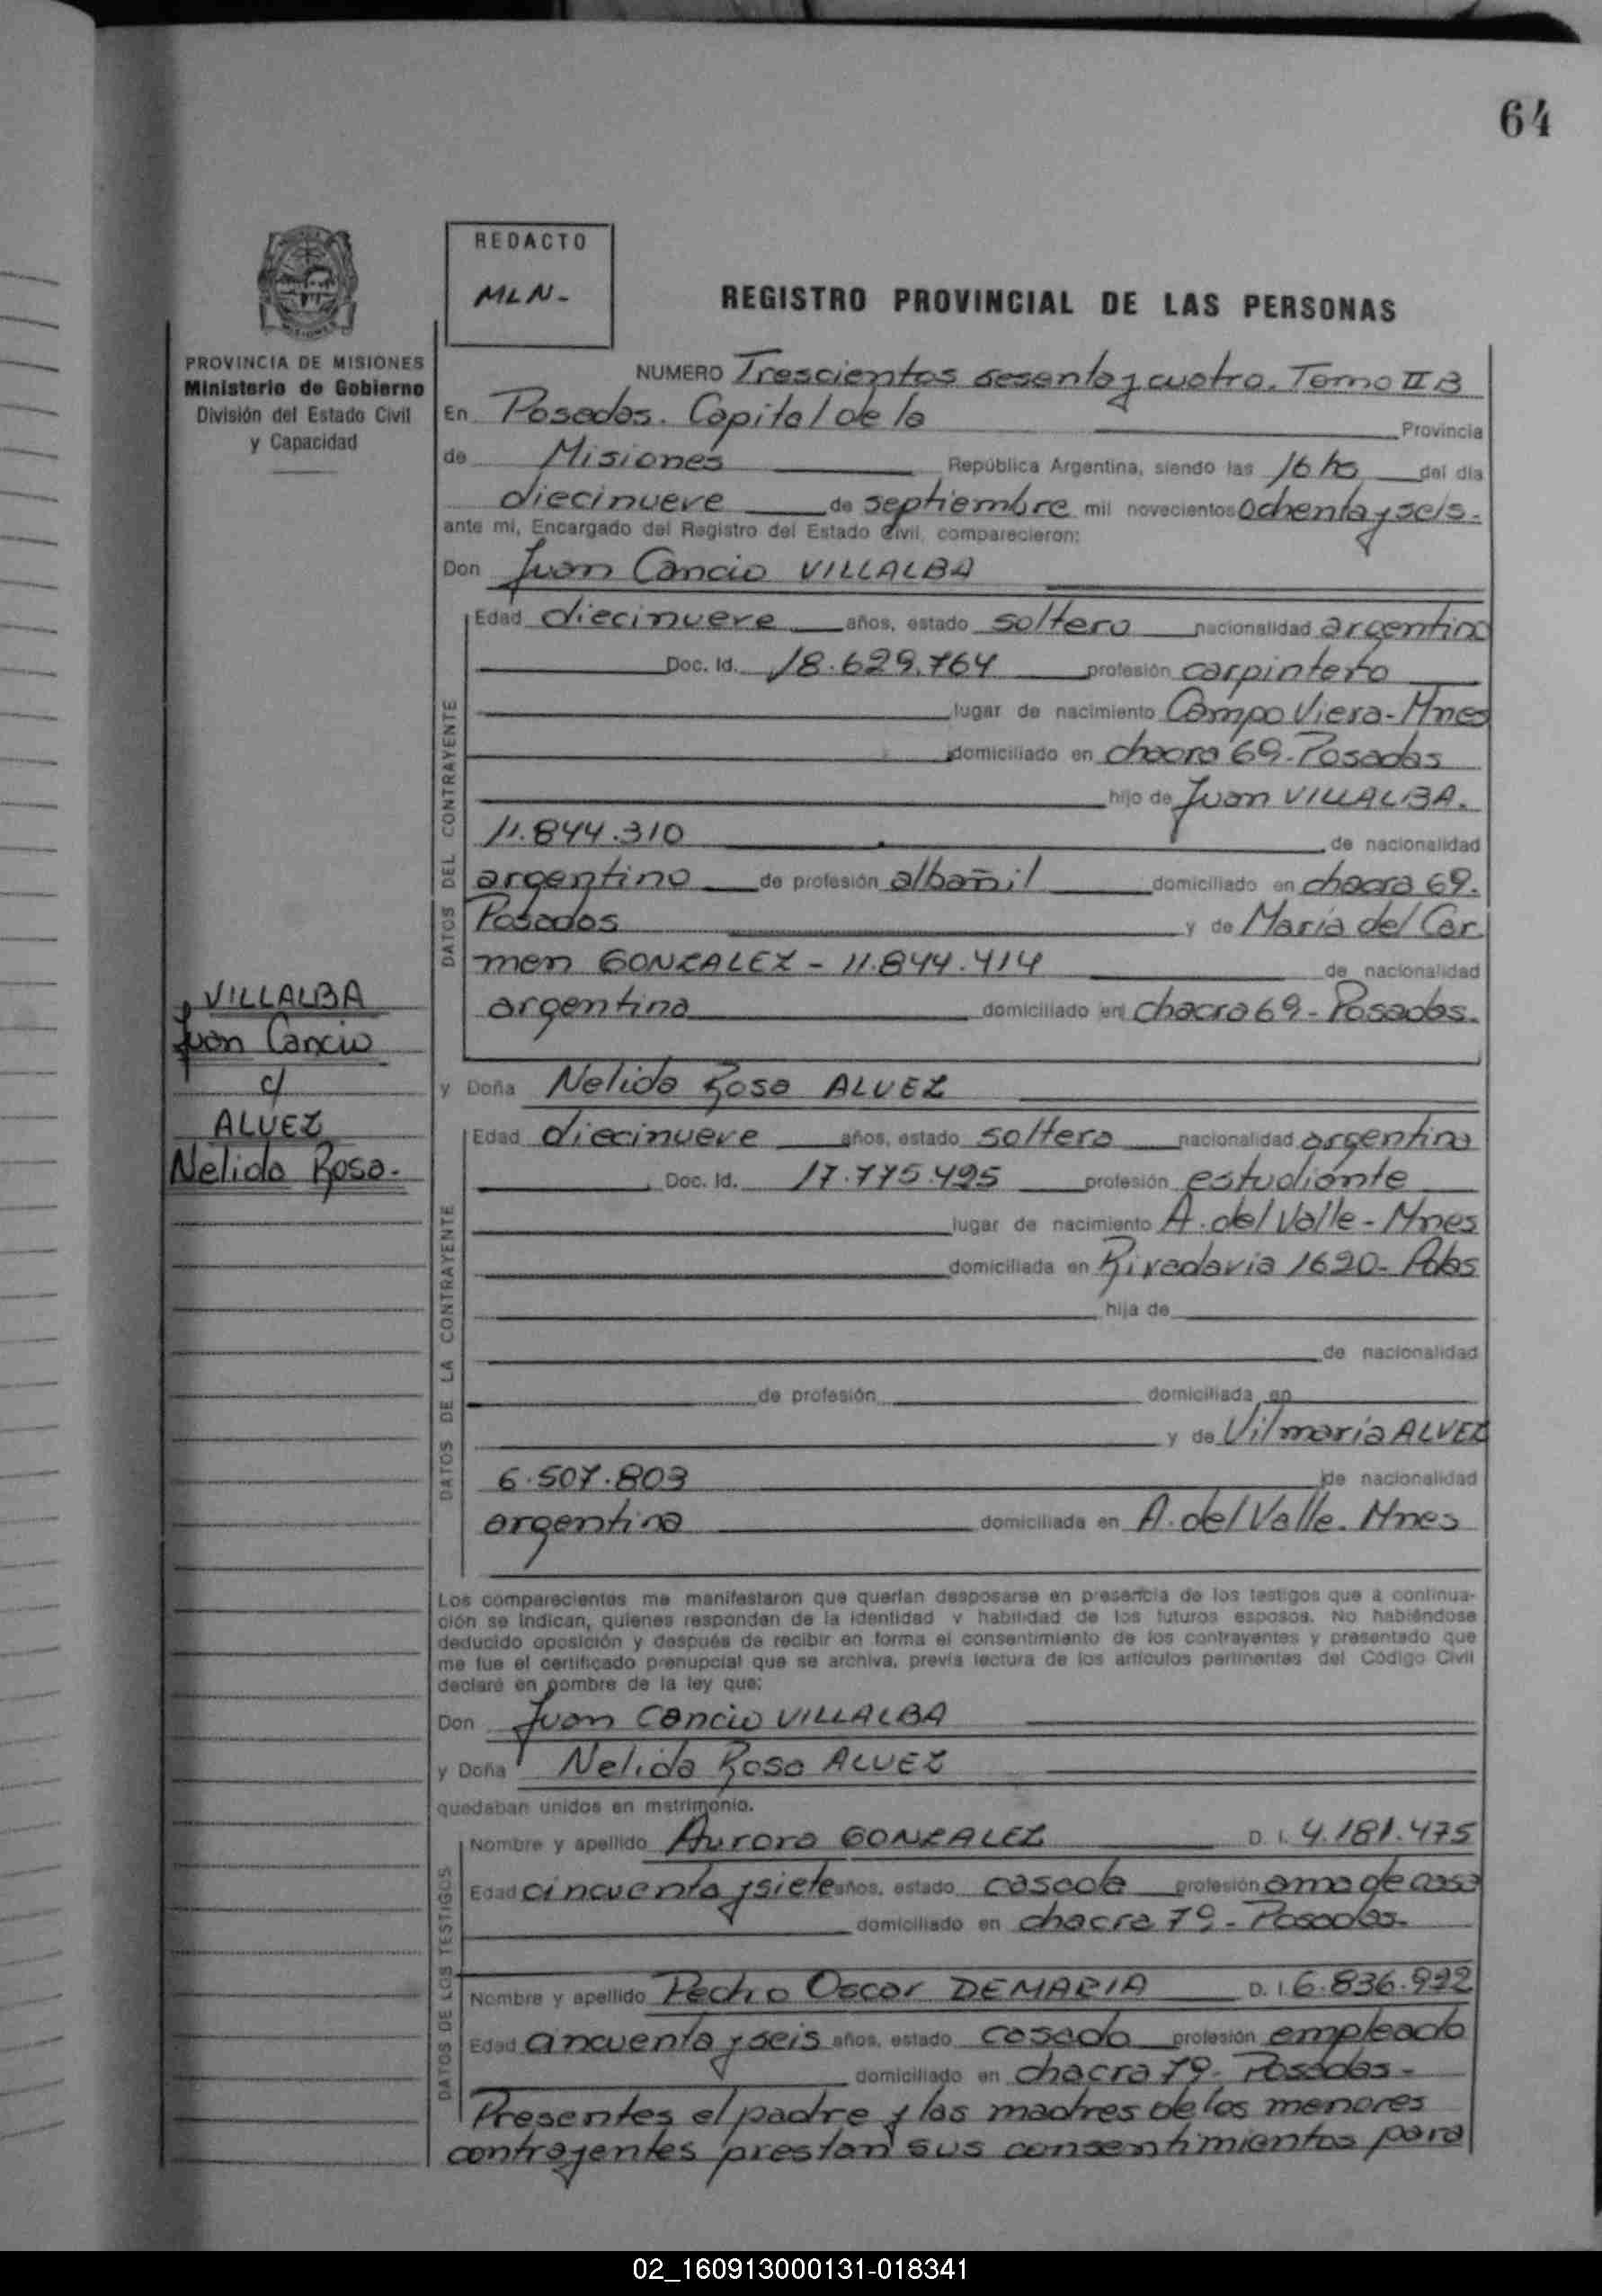 64
REDACTO
MLN-
REGISTRO PROVINCIAL DE LAS PERSONAS
PROVINCIA DE MISIONES
Ministerio de Gobierno
División del Estado Civil
y Capacidad
NUMERO Trescientos sesenta y cuatro. Tomo II B
En Posadas. Capital de la Provincia
de Misiones República Argentina, siendo las 16 hs del día
diecinueve de septiembre mil novecientos ochenta y seis.
ante mi, Encargado del Registro del Estado Civil, comparecieron:
Don Juan Cancio VILLALBA
DATOS DEL CONTRAYENTE
Edad diecinueve años, estado soltero nacionalidad argentino
Doc. Id. 18.629.764 profesión carpintero
lugar de nacimiento Campo Viera-Mnes
domiciliado en chacra 69-Posadas
hijo de Juan VILLALBA.
11.844.310 de nacionalidad
argentino de profesión albañil domiciliado en chacra 69.
Posadas y de María del Car
men GONZALEZ - 11.844.414 de nacionalidad
argentina domiciliado en chacra 69 - Posadas.
VILLALBA
Juan Cancio
c/
ALVEZ
Nelida Rosa.
y Doña Nelida Rosa ALVEZ
DATOS DE LA CONTRAYENTE
Edad diecinueve años, estado soltera nacionalidad argentina
Doc. Id. 17.775.495 profesión estudiante
lugar de nacimiento A. del Valle - Mnes
domiciliada en Rivadavia 1620- Pdas
hija de
de nacionalidad
de profesión domiciliada en
y de Vilmaria ALVEZ
6.507.803 de nacionalidad
argentina domiciliada en A. del Valle. Mnes
Los comparecientes me manifestaron que querían desposarse en presencia de los testigos que a continua-
ción se indican, quienes responden de la identidad y habilidad de los futuros esposos. No habiéndose
deducido oposición y después de recibir en forma el consentimiento de los contrayentes y presentado que
me fue el certificado prenupcial que se archiva, previa lectura de los artículos pertinentes del Código Civil
declaré en nombre de la ley que:
Don Juan Cancio VILLALBA
y Doña Nelida Rosa ALVEZ
quedaban unidos en matrimonio.
DATOS DE LOS TESTIGOS
Nombre y apellido Aurora GONZALEZ D. I. 4.181.475
Edad cincuenta y siete años, estado casada profesión ama de casa
domiciliado en chacra 79 - Posadas.
Nombre y apellido Pedro Oscar DEMARIA D. I. 6.836.922
Edad cincuenta y seis años, estado casado profesión empleado
domiciliado en chacra 79- Posadas-
Presentes el padre y las madres de los menores
contrayentes prestan sus consentimientos para
02_160913000131-018341